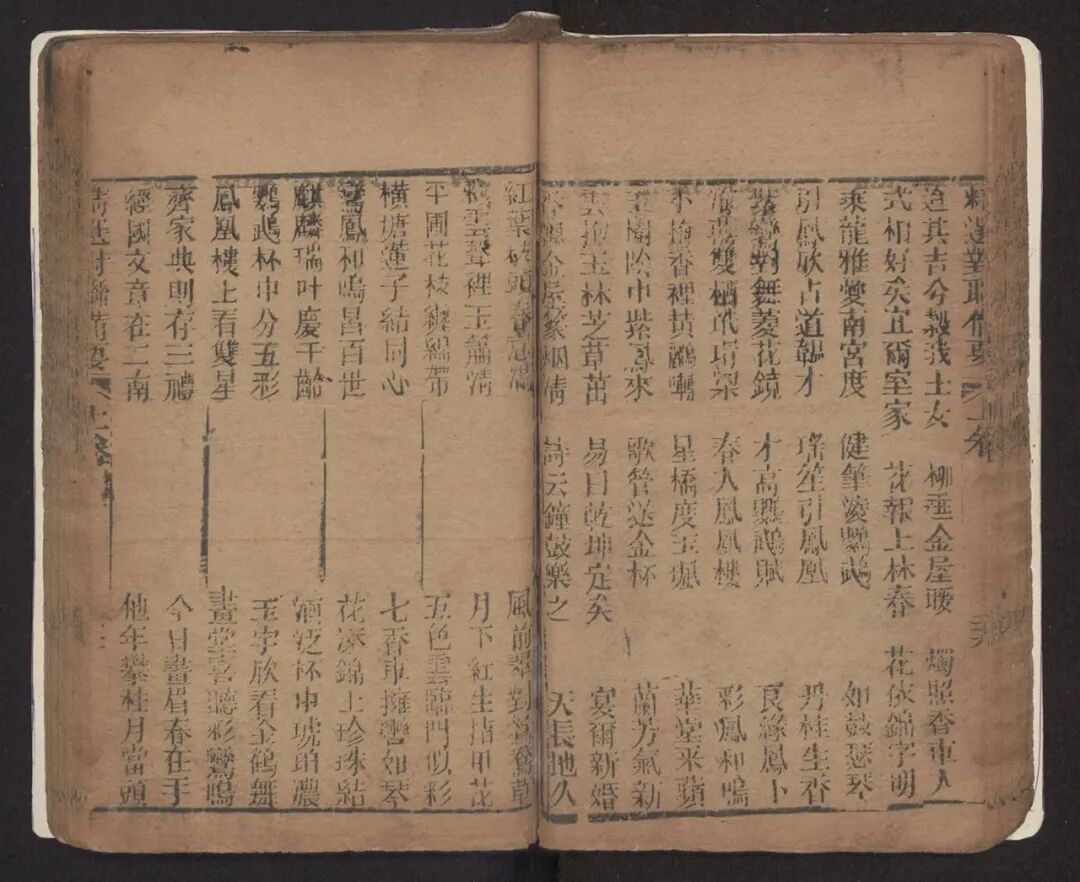 精選對聯備要 上卷
迨其吉兮穀我士女 柳垂金屋暖 燭照香車入
式相好矣宜爾室家 花報上林春 花依錦字明
乘龍雅愛南宮度 健筆凌鸚鵡 如鼓瑟琴
引鳳欣占道韞才 瑤笙引鳳凰 丹桂生香
紫鸞對舞菱花鏡 才高鸚鵡賦 良緣鳳卜
海燕雙栖玳瑁梁 春入鳳凰樓 彩鳳和鳴
梅香裡黃鸝囀 星橋度玉珮 華堂采蘋
玉樹陰中紫鳳來 歌管送金杯 蘭芳氣新
雲抱玉林芝草茁 易曰乾坤定矣 宴爾新婚
香飄金屋篆烟清 詩云鐘鼓樂之 天長地久
紅葉頭春 風前翠對鴛鴦草
雲聲裡玉簫清 月下紅生指甲花
平圃花枝繡帶 五色雲臨門似彩
橫塘蓮子結同心 七香車擁轡如琴
鸞鳳和鳴昌百世 花添錦上珍珠結
麒麟瑞叶慶千齡 酒泛杯中琥珀濃
鸚鵡杯中分五彩 玉宇欣看金鶴舞
鳳凰樓上看雙星 畫堂喜聽彩鸞鳴
齊家典則存三禮 今日畫眉春在手
經國文章在二南 他年攀桂月當頭
精選對聯備要 上卷